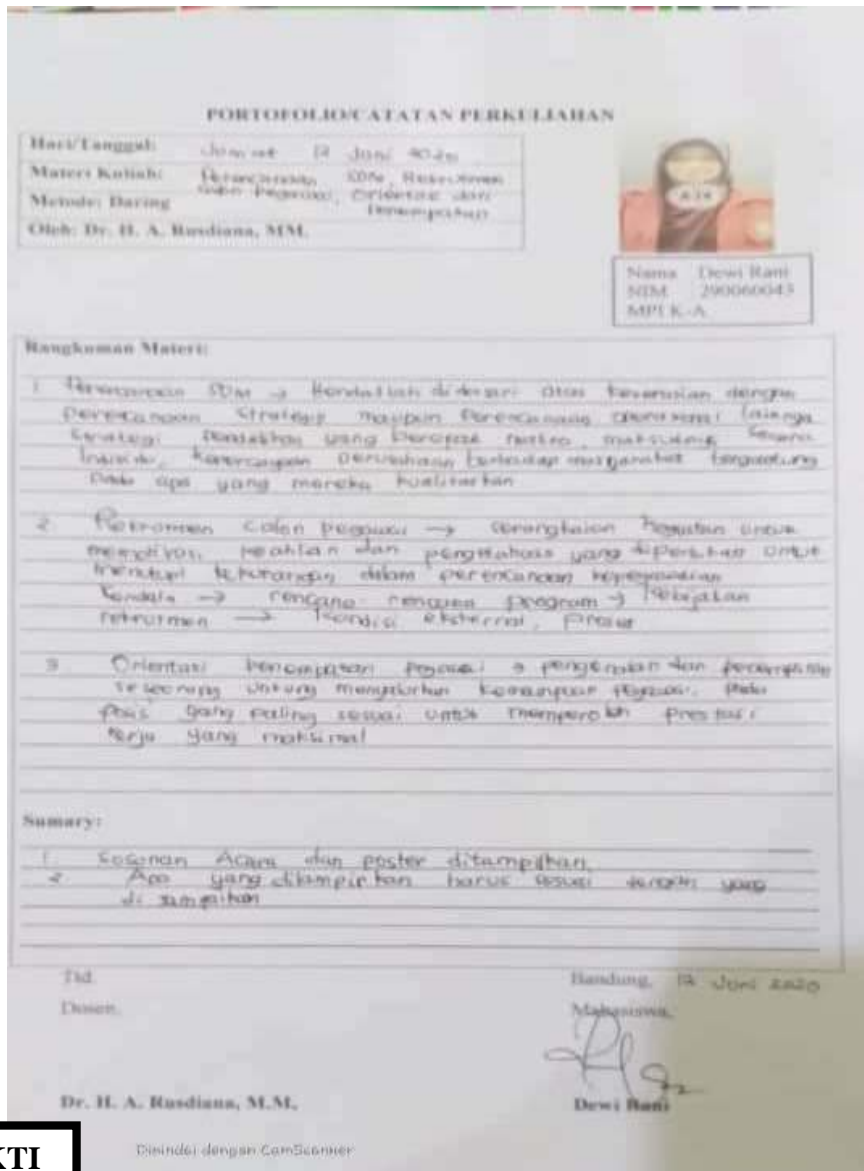 PORTOFOLIO/CATATAN PERKULIAHAN
Hari/Tanggal: Jum'at 12 Juni 2020
Materi Kuliah: Perencanaan SDM, Rekrutmen
Calon Pegawai, Orientasi dan
Metode: Daring
Penempatan
Oleh: Dr. H. A. Rusdiana, MM.
Nama Dewi Rani
NIM 290060043
MPI K-A
Rangkuman Materi:
1 Perencanaan SDM → Hendaklah didasari atas keserasian dengan
perencanaan Strategis maupun Perencanaan operasional lainnya
Strategi pendekatan yang bercorak makro, maksudnya secara
kepercayaan perusahaan terhadap masyarakat tergantung
pada apa yang mereka
2 Rekrutmen calon pegawai → serangkaian kegiatan untuk
memotivasi, keahlian dan pengetahuan yang diperlukan untuk
menutupi kekurangan dalam perencanaan kepegawaian
Kendala → rencana rencana program → kebijakan
rekrutmen → Kondisi eksternal, proses
3 Orientasi penempatan pegawai → pengenalan dan penempatan
seseorang untung menyalurkan kemampuan pegawai, pada
posisi yang paling sesuai untuk memperoleh prestasi
kerja yang maksimal
Sumary:
1. Susunan Acara dan poster ditampilkan.
2 Apa yang ditampilkan harus sesuai dengan yang
di sampaikan
Ttd. Bandung, 12 Juni 2020
Dosen, Mahasiswa,
Dr. H. A. Rusdiana, M.M. Dewi Rani
KTI
Dipindai dengan CamScanner